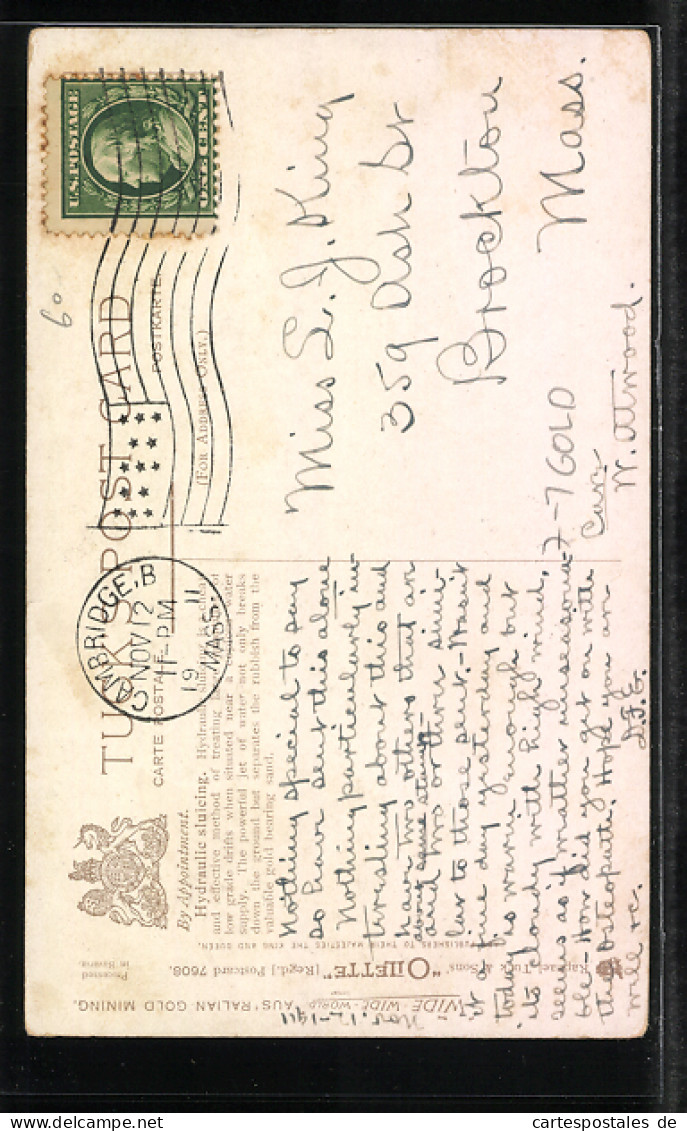 U.S. POSTAGE
ONE CENT
60
TUCK'S POST CARD
CARTE POSTALE
POSTKARTE
(FOR ADDRESS ONLY.)
CAMBRIDGE, B
NOV 12
11-PM
19 11
MASS.
By Appointment.
Hydraulic sluicing. Hydraulic sluicing is a cheap
and effective method of treating
low grade drifts when situated near a water
supply. The powerful jet of water not only breaks
down the ground but separates the rubbish from the
valuable gold bearing sand.
Nothing special to say
so have sent this alone
Nothing particularly in-
teresting about this and
have two others that are
along same study
and two others simi-
lar to those sent. - Wasn't
it a fine day yesterday and
today is warm enough but
its cloudy with high wind.
seems as if rather unseasona-
ble - How did you get on with
the Osteopath. Hope you are
well re.
D.F.E.
Miss L. J. King
359 Ash St
Brockton
Mass.
7-7 GOLD
Care
W. Atwood.
PUBLISHERS TO THEIR MAJESTIES THE KING AND QUEEN.
Raphael Tuck & Sons' "OILETTE" [Regd.] Postcard 7608.
Processed
in Bavaria.
WIDE-WIDE-WORLD "AUSTRALIAN GOLD MINING.
Nov. 12-1911
cartespostales de